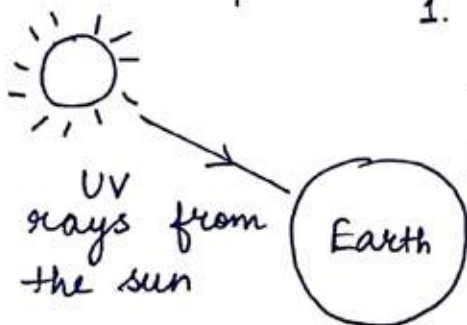 1.
UV
rays from
the sun
Earth